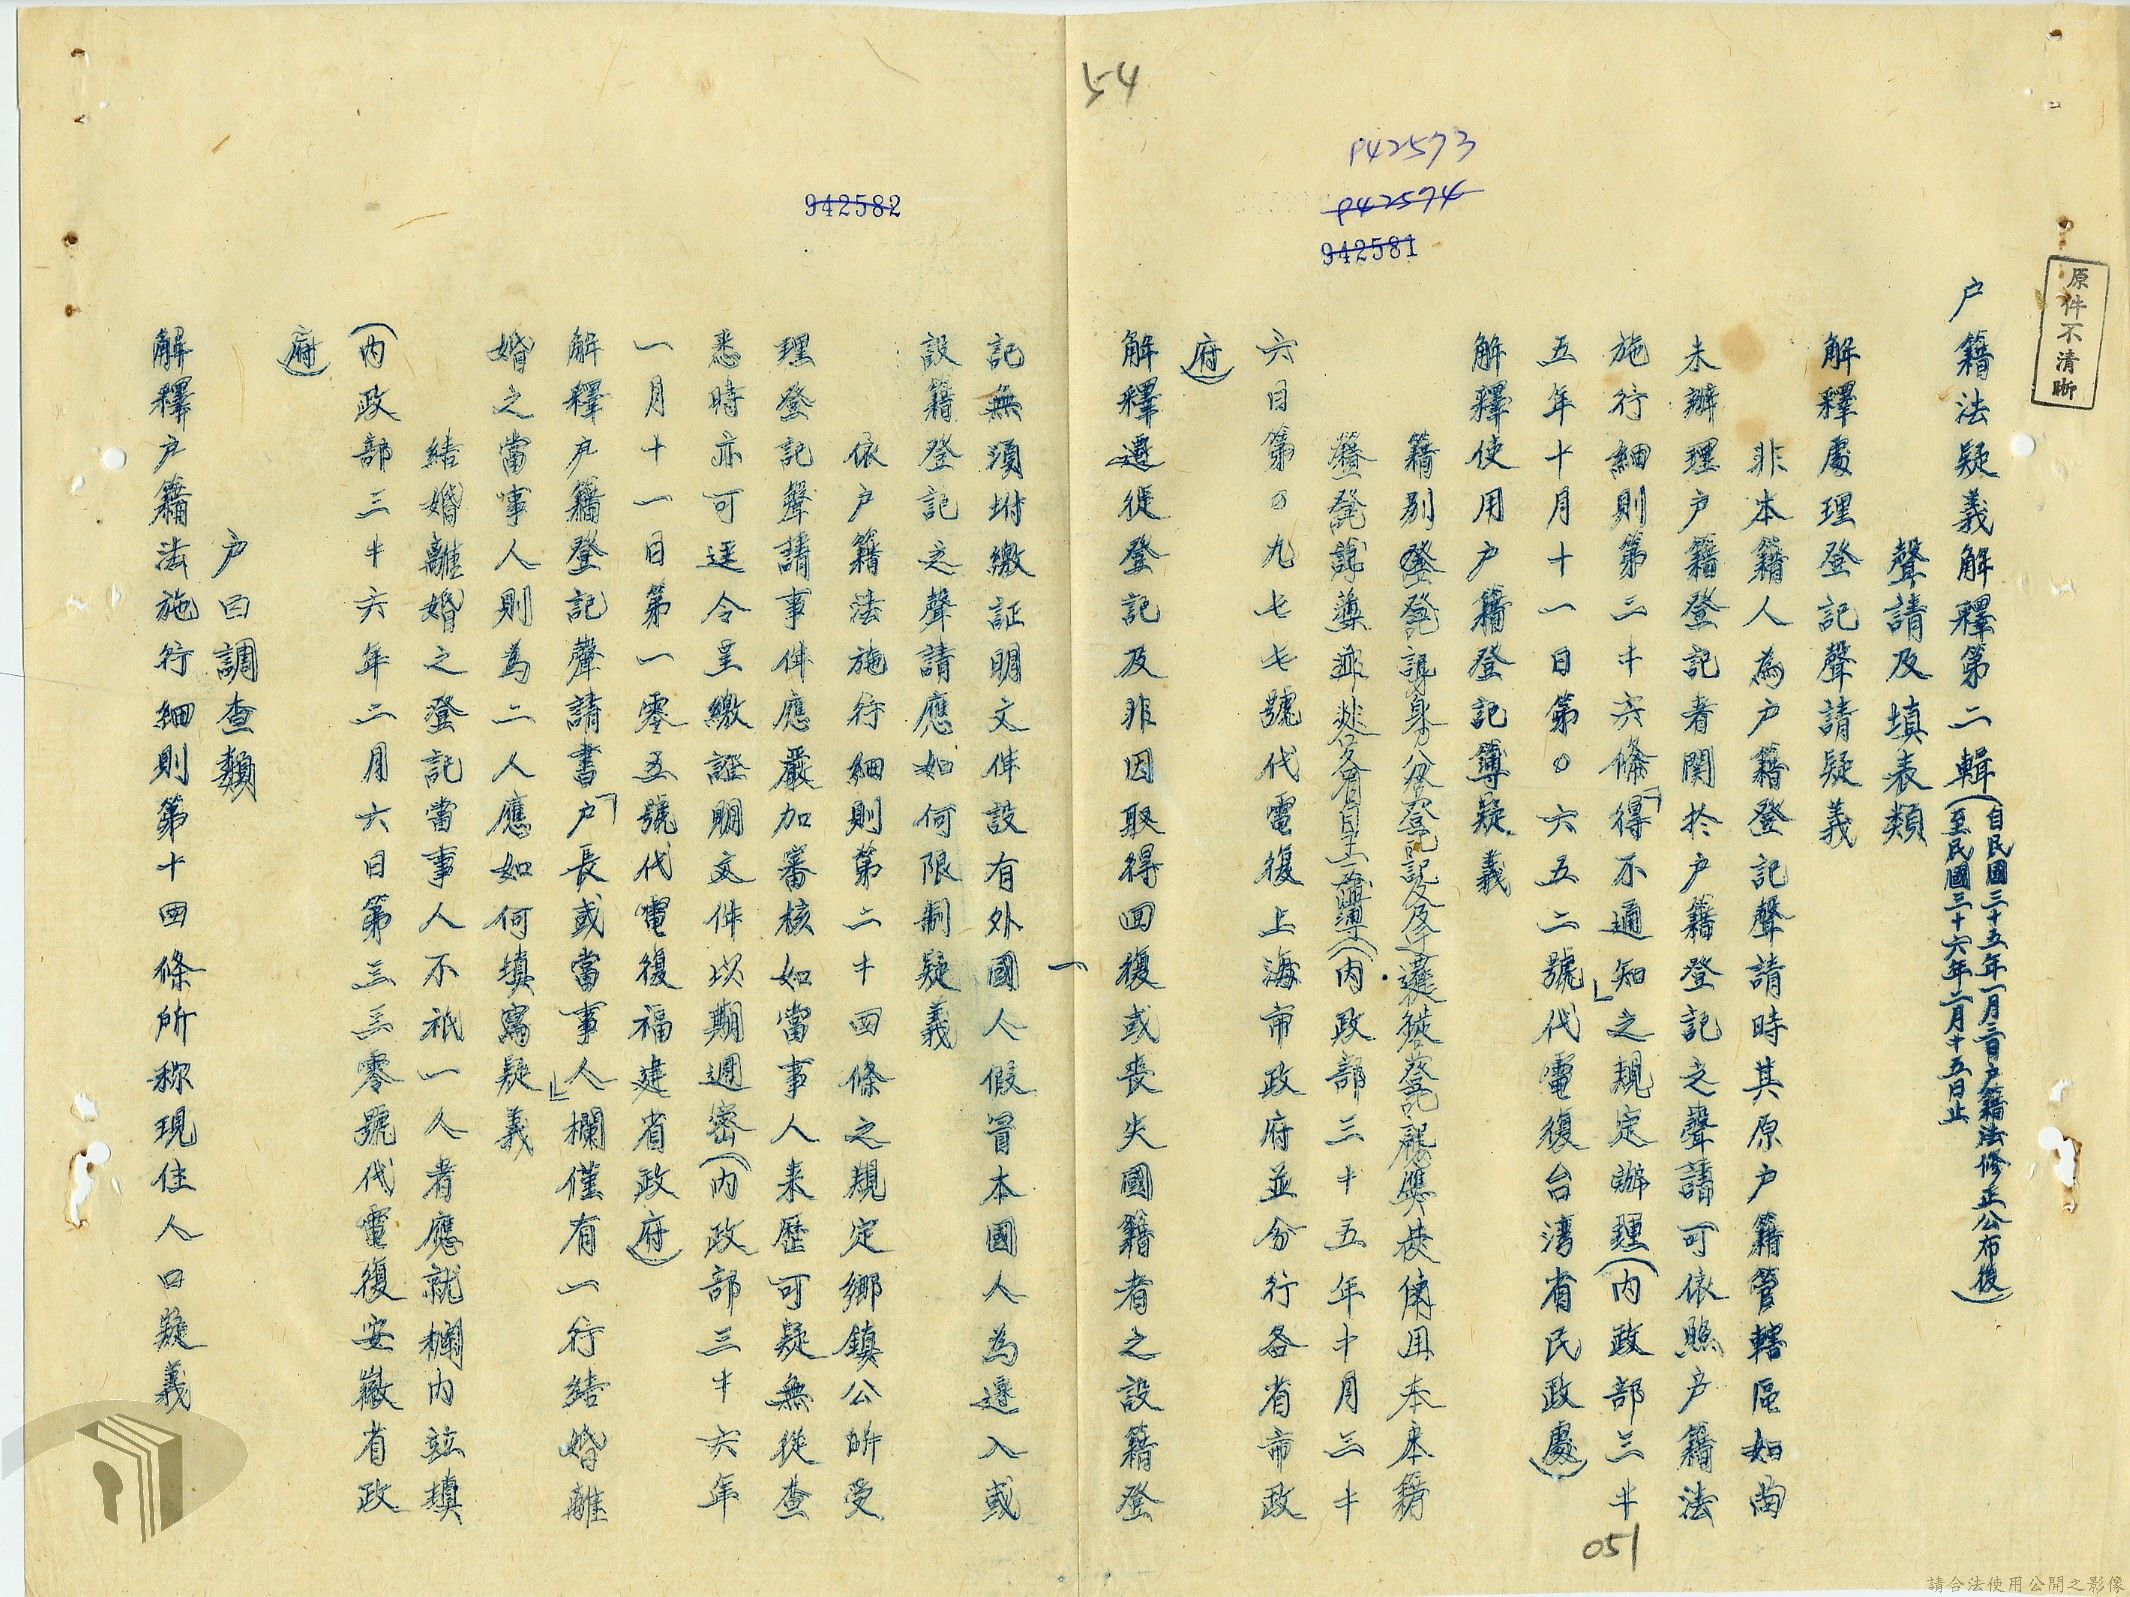 54
P42573
P42574
942581
942582
原件不清晰
户籍法疑義解釋第二輯(自民國三十五年一月三日户籍法修正公布後
至民國三十六年二月十五日止)
聲請及填表類
解釋處理登記聲請疑義
非本籍人為户籍登記聲請時其原户籍管轄區如尚
未辦理户籍登記者関於户籍登記之聲請可依照户籍法
施行細則第三十六條「得不通知」之規定辦理(內政部三十
五年十月十一日第0六五二號代電復台湾省民政處)
解釋使用户籍登記簿疑義
籍別登記身分登記及遷徙登記應使用本籍
(內政部三十五年十月三十
六日第0九七七號代電復上海市政府並分行各省市政
府)
解釋遷徙登記及非因取得回復或喪失國籍者之設籍登
一
記無須坿繳証明文件設有外國人假冒本國人為遷入或
設籍登記之聲請應如何限制疑義
依户籍法施行細則第二十四條之規定鄉鎮公所受
理登記聲請事件應嚴加審核如當事人来歷可疑無從查
悉時亦可逕令呈繳證明文件以期週密(內政部三十六年
一月十一日第一零五號代電復福建省政府)
解釋户籍登記聲請書「户長或當事人」欄僅有一行結婚離
婚之當事人則為二人應如何填寫疑義
結婚離婚之登記當事人不祇一人者應就欄内竝填
(内政部三十六年二月六日第三三零號代電復安徽省政
府)
户口調查類
解釋户籍法施行細則第十四條所称現住人口疑義
051
請合法使用公開之影像